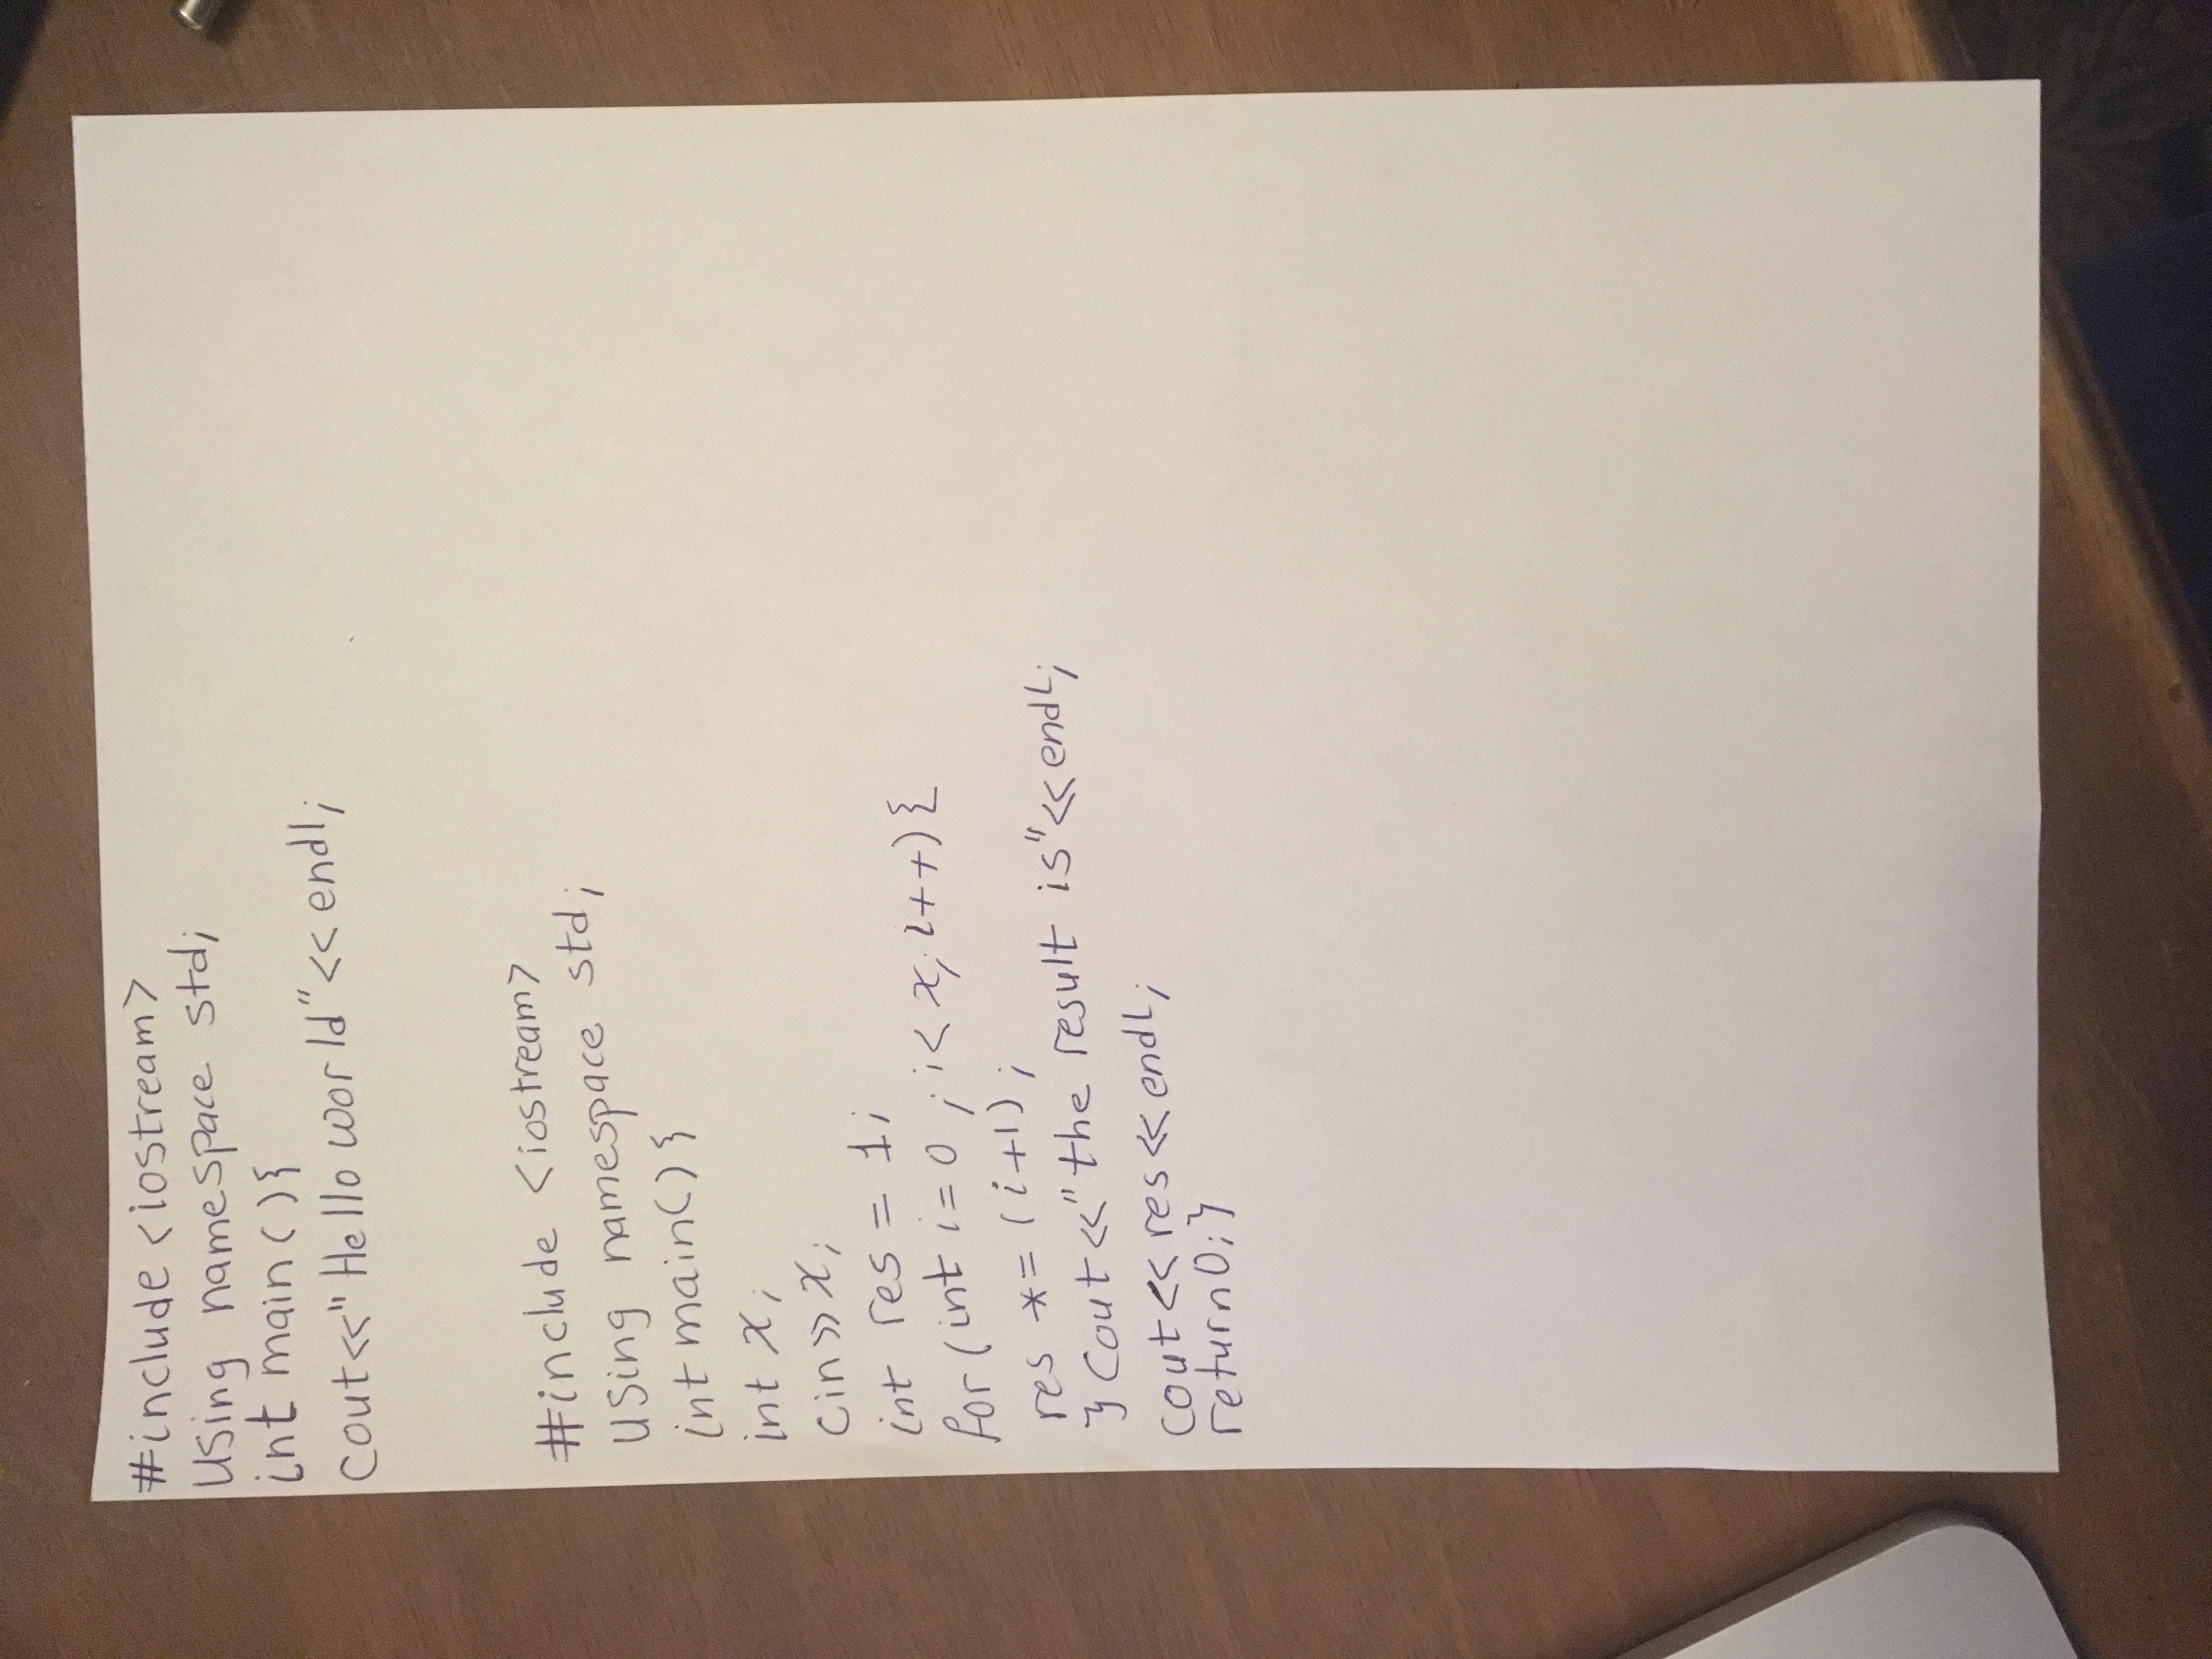 #include <iostream>
using namespace std;
int main(){
cout<<"Hello world"<<endl;
#include <iostream>
using namespace std;
int main(){
int x;
cin>>x;
int res = 1;
for(int i=0; i<x; i++){
res *= (i+1);
} cout<<"the result is"<<endl;
cout<<res<<endl;
return 0;}